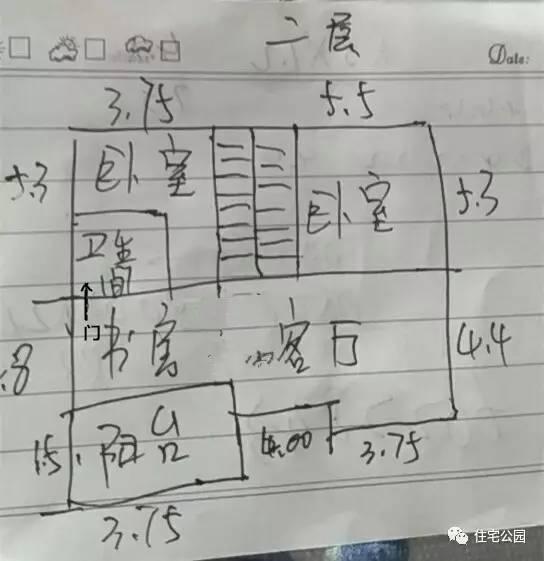 二层
Date:
3.75 5.5
卧室
5.3
卧室
5.3
卫生间
门
书房
客厅
4.4
阳台
1.5
4.00
3.75
3.75
住宅公园